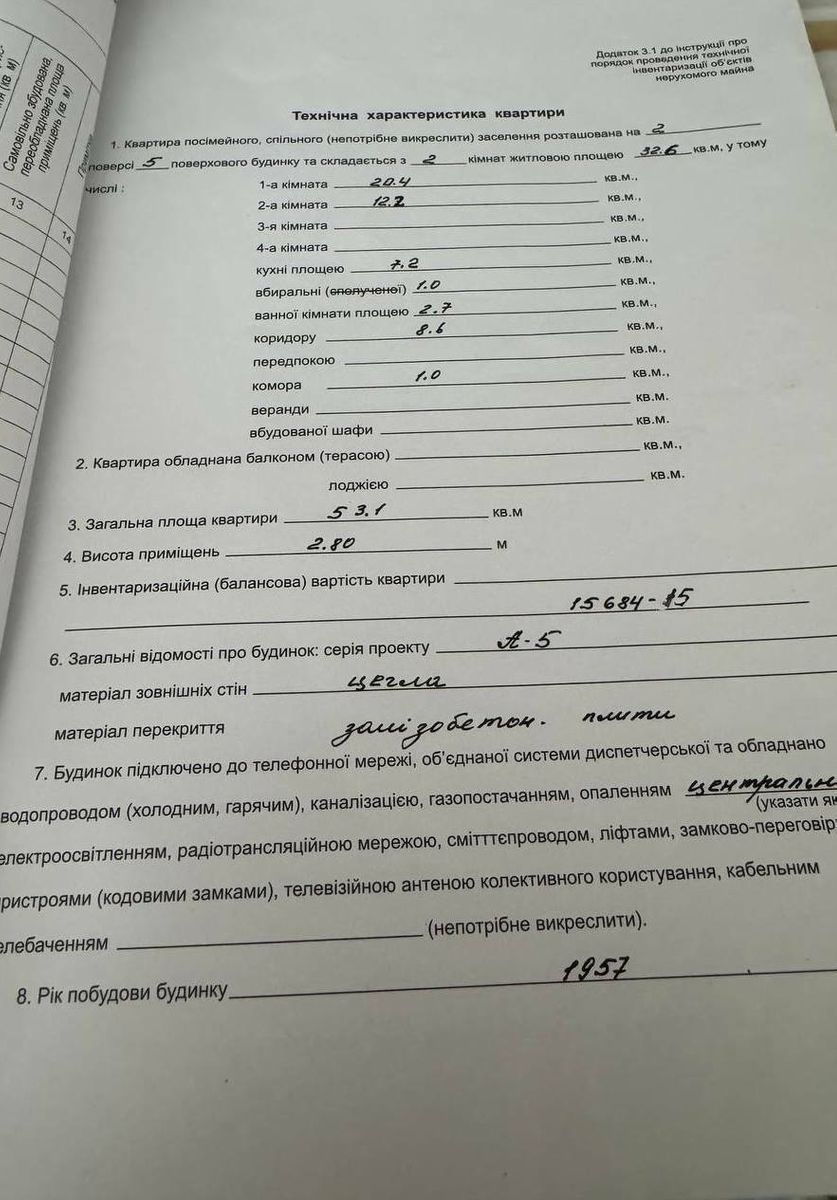 Самовільно збудована,
переобладнана площа
приміщень (кв. м)
13
14
Додаток 3.1 до Інструкції про
порядок проведення технічної
інвентаризації об'єктів
нерухомого майна
Технічна характеристика квартири
1. Квартира посімейного, спільного (непотрібне викреслити) заселення розташована на 2
поверсі 5 поверхового будинку та складається з 2 кімнат житловою площею 32.6 кв.м, у тому
числі :
1-а кімната 20.4 кв.м.,
2-а кімната 12.2 кв.м.,
3-я кімната кв.м.,
4-а кімната кв.м.,
кухні площею 7.2 кв.м.,
вбиральні (сполученої) 1.0 кв.м.,
ванної кімнати площею 2.7 кв.м.,
коридору 8.6 кв.м.,
передпокою кв.м.,
комора 1.0 кв.м.,
веранди кв.м.
вбудованої шафи кв.м.
2. Квартира обладнана балконом (терасою) кв.м.,
лоджією кв.м.
3. Загальна площа квартири 53.1 кв.м
4. Висота приміщень 2.80 м
5. Інвентаризаційна (балансова) вартість квартири
15684-15
6. Загальні відомості про будинок: серія проекту А-5
матеріал зовнішніх стін цегла
матеріал перекриття залізобетон. плити
7. Будинок підключено до телефонної мережі, об'єднаної системи диспетчерської та обладнано
водопроводом (холодним, гарячим), каналізацією, газопостачанням, опаленням центральн
(указати як
електроосвітленням, радіотрансляційною мережою, смітттєпроводом, ліфтами, замково-переговір
ристроями (кодовими замками), телевізійною антеною колективного користування, кабельним
елебаченням (непотрібне викреслити).
8. Рік побудови будинку 1957